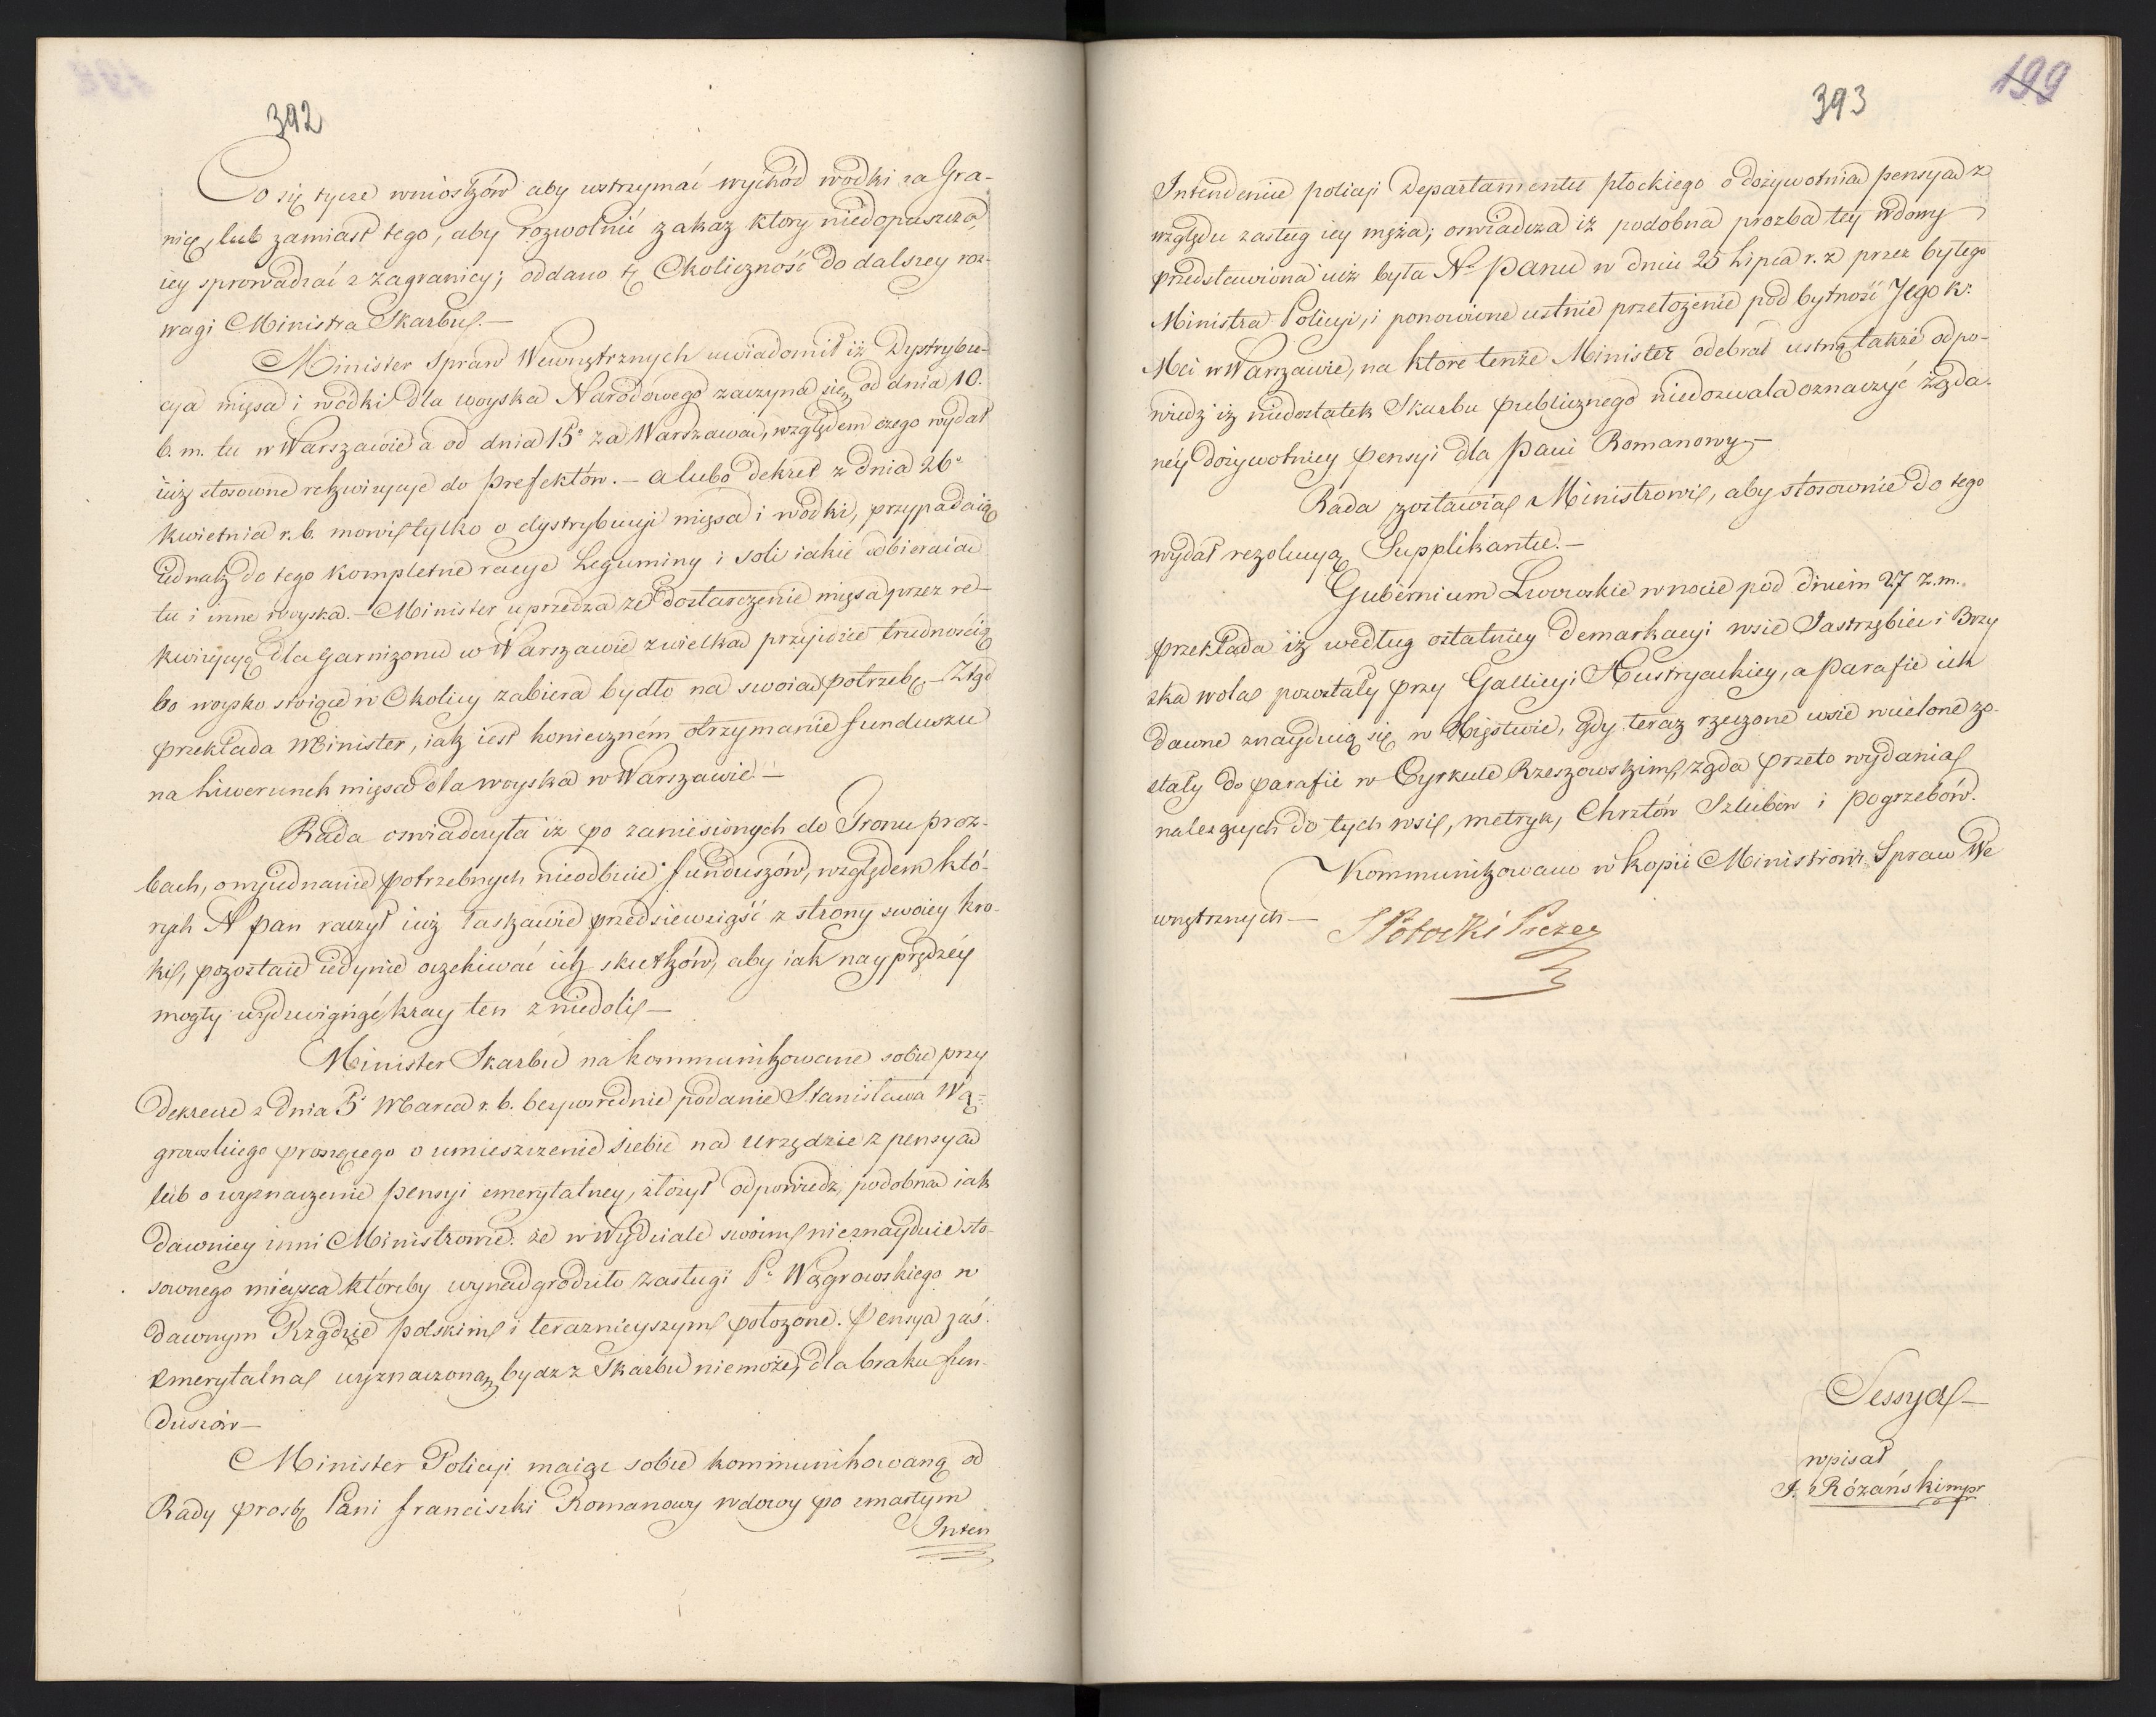 392
Co się tycze wniosków aby wstrzymać wychód wódki za Gra-
nicę, lub zamiast tego, aby rozwolnić zakaz ktory niedopuszcza
iey sprowadzać z zagranicy; oddano tę Okoliczność do dalszey roz-
wagi Ministra Skarbu.—
Minister Spraw Wewnętrznych uwiadomił iż Dystrybu-
cya mięsa i wódki dla woyska Narodowego zaczyna się od dnia 10.
b. m. tu w Warszawie a od dnia 15° za Warszawą, względem czego wydał
iuż stosowne rekwizycye do Prefektów.— a lubo dekret z dnia 26°
kwietnia r. b. mowi tylko o dystrybucyi mięsa i wódki, przypadaią
iednak do tego kompletne racye Leguminy i soli iakie odbieraią
tu i inne woyska.— Minister uprzedza że dostarczenie mięsa przez re-
kwizycyą dla garnizonu w Warszawie z wielką przyidzie trudnością
bo woysko stoiące w Okolicy zabiera bydło na swoią potrzebę.— Ztąd
przekłada Minister, iak iest koniecznem otrzymanie funduszu
na Liwerunek mięsa dla woyska w Warszawie.—
Rada oswiadczyła iż po zaniesionych do Tronu proz-
bach, o wyiednanie potrzebnych nieodbicie funduszów, względem któ-
rych N Pan raczył iuż łaskawie przedsięwziąść z strony swoiey kro-
ki, pozostaie iedynie oczekiwać ich skutków, aby iak nayprędzéy
mogły wydzwignąć kray ten z niedoli—
Minister Skarbu na kommunikowane sobie przy
Dekrecie z Dnia 5° Marca r. b. bezposrednie podanie Stanisława Wą-
growskiego proszącego o umieszczenie siebie na urzędzie z pensyą
lub o wyznaczenie pensyi emerytalney, złożył odpowiedz, podobną iak
dawniey inni Ministrowie: że w Wydziale swoim nieznayduie sto-
sownego mieysca któreby wynadgrodziło zasługi P. Wągrowskiego w
dawnym Rządzie polskim i teraznieyszym położone. Pensya zaś
emerytalna wyznaczoną bydz z Skarbu niemoże, dla braku fun-
duszów—
Minister Policyi maiąc sobie kommunikowaną od
Rady prosbę Pani franciszki Romanowy wdowy po zmarłym
Inten
393
199
Intendencie policyi Departamentu płockiego o dożywotnią pensyą z
względu zasług iey męża; oswiadcza iż podobna prozba tey wdowy
przedstawiona iuż była N° Panu w dniu 25 Lipca r. z przez byłego
Ministra Policyi, i ponowione ustnie przełożenie pod bytność Jego K.
Mci w Warszawie, na ktore tenże Minister odebrał ustną także odpo-
wiedz iż niedostatek Skarbu publicznego niedozwala oznaczyć żąda-
néy dożywotniey pensyi dla Pani Romanowy—
Rada zostawia Ministrowi, aby stosownie do tego
wydał rezolucyą Supplikantce.—
Gubernium Lwowskie w nocie pod dniem 27 z. m.
przekłada iż według ostatniey Demarkacyi wsie Jastrzębiec i Brzy
ska wola pozostały przy Gallicyi Austryackiey, a Parafie ich
dawne znayduią się w Xięstwie, gdy teraz rzeczone wsie wcielone zo-
stały do parafii w Cyrkule Rzeszowskim, żąda przeto wydania
należących do tych wsi, metryk, Chrztów Szlubów i pogrzebów.
Kommunikowano w kopii Ministrowi Spraw We
wnętrznych—
S Potocki Prezes
Sessya—
wpisał
J. Różański mpr